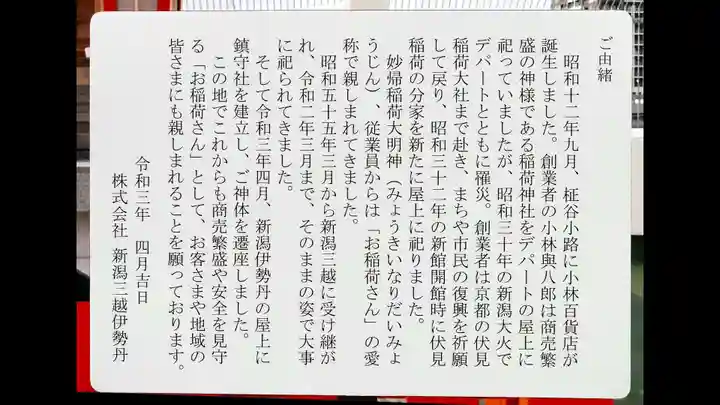 ご由緒
昭和十二年九月、柾谷小路に小林百貨店が
誕生しました。創業者の小林與八郎は商売繁
盛の神様である稲荷神社をデパートの屋上に
祀っていましたが、昭和三十年の新潟大火で
デパートとともに罹災。創業者は京都の伏見
稲荷大社まで赴き、まちや市民の復興を祈願
して戻り、昭和三十二年の新館開館時に伏見
稲荷の分家を新たに屋上に祀りました。
妙帰稲荷大明神（みょうきいなりだいみょ
うじん）、従業員からは「お稲荷さん」の愛
称で親しまれてきました。
昭和五十五年三月から新潟三越に受け継が
れ、令和二年三月まで、そのままの姿で大事
に祀られてきました。
そして令和三年四月、新潟伊勢丹の屋上に
鎮守社を建立し、ご神体を遷座しました。
この地でこれからも商売繁盛や安全を見守
る「お稲荷さん」として、お客さまや地域の
皆さまにも親しまれることを願っております。
令和三年　四月吉日
株式会社 新潟三越伊勢丹